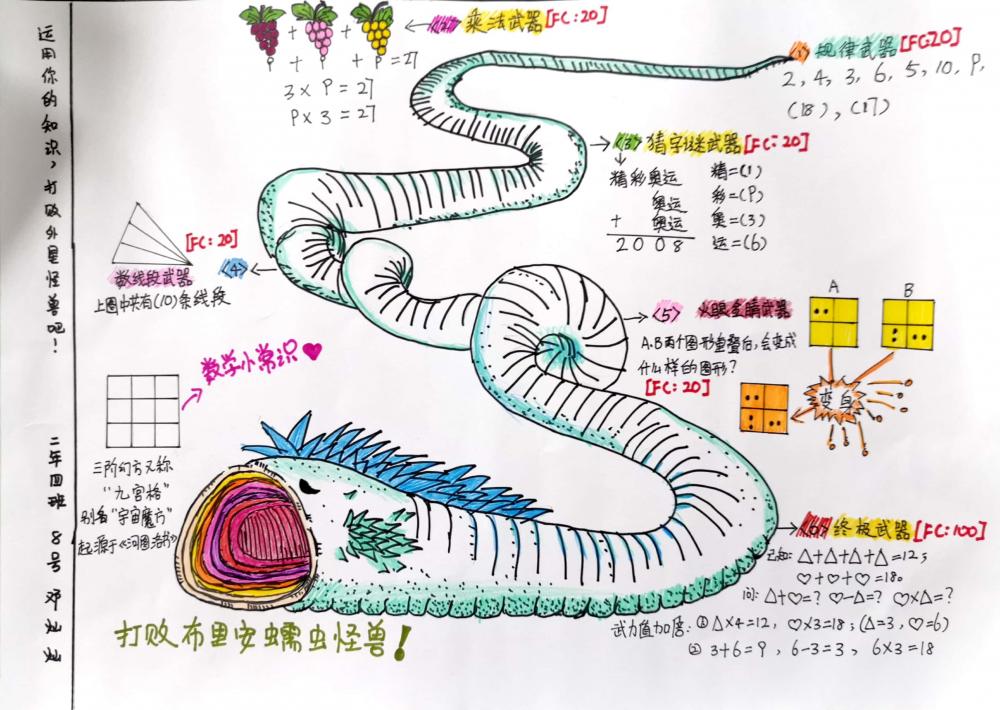 运用你的知识，打败外星怪兽吧！
二年四班 8号 邓灿灿
<2> 乘法武器 [FC:20]
+ +
9 + 9 + 9 = 27
3 × 9 = 27
9 × 3 = 27
<1> 规律武器 [FC:20]
2, 4, 3, 6, 5, 10, 9,
(18), (17)
<3> 猜字谜武器 [FC:20]
精彩奥运 精=(1)
奥运 彩=(9)
+ 奥运 奥=(3)
2 0 0 8 运=(6)
[FC:20]
数线段武器 <4>
上图中共有(10)条线段
<5> 火眼金睛武器
A B
A.B两个图形重叠后，会变成
什么样的图形？
[FC:20]
变身
数学小常识
三阶幻方又称
“九宫格”
别名“宇宙魔方”
起源于《河图洛书》
<6> 终极武器 [FC:100]
已知: △+△+△+△=12；
♡+♡+♡=18。
问: △+♡=? ♡-△=? ♡×△=?
武力值加倍: ① △×4=12, ♡×3=18; (△=3, ♡=6)
② 3+6=9, 6-3=3, 6×3=18
打败布里安蠕虫怪兽！